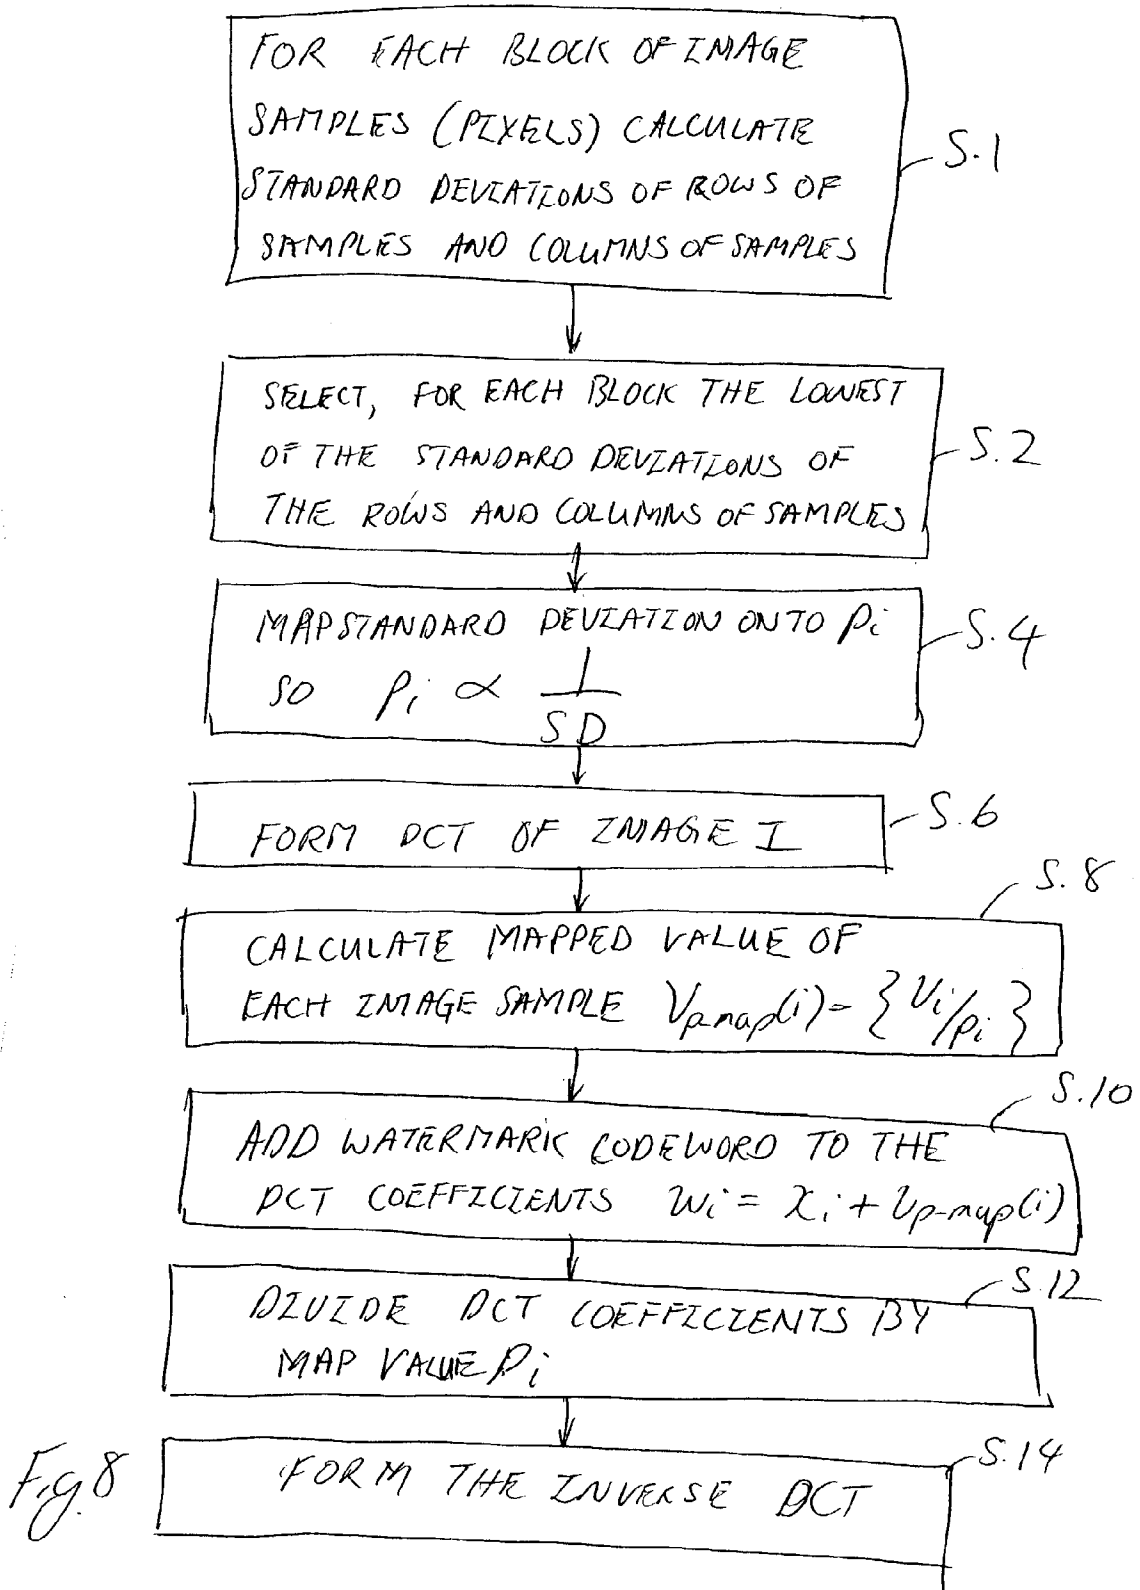 FOR EACH BLOCK OF IMAGE
SAMPLES (PIXELS) CALCULATE
STANDARD DEVIATIONS OF ROWS OF
SAMPLES AND COLUMNS OF SAMPLES
S.1
SELECT, FOR EACH BLOCK THE LOWEST
OF THE STANDARD DEVIATIONS OF
THE ROWS AND COLUMNS OF SAMPLES
S.2
MAP STANDARD DEVIATION ONTO Pi
SO Pi ∝ 1/SD
S.4
FORM DCT OF IMAGE I
S.6
S.8
CALCULATE MAPPED VALUE OF
EACH IMAGE SAMPLE Vp-map(i) = {Vi/pi}
S.10
ADD WATERMARK CODEWORD TO THE
DCT COEFFICIENTS wi = xi + vp-map(i)
S.12
DIVIDE DCT COEFFICIENTS BY
MAP VALUE Pi
S.14
FORM THE INVERSE DCT
Fig 8